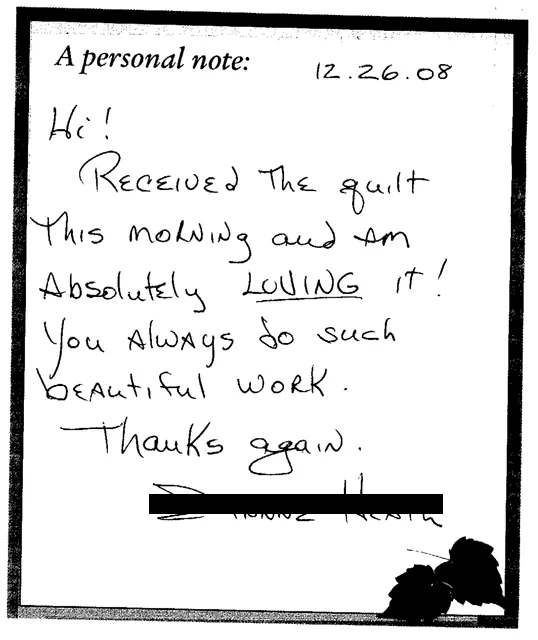 A personal note:
12.26.08
Hi!
Received the quilt
this morning and am
absolutely LOVING it!
You always do such
beautiful work.
Thanks again.